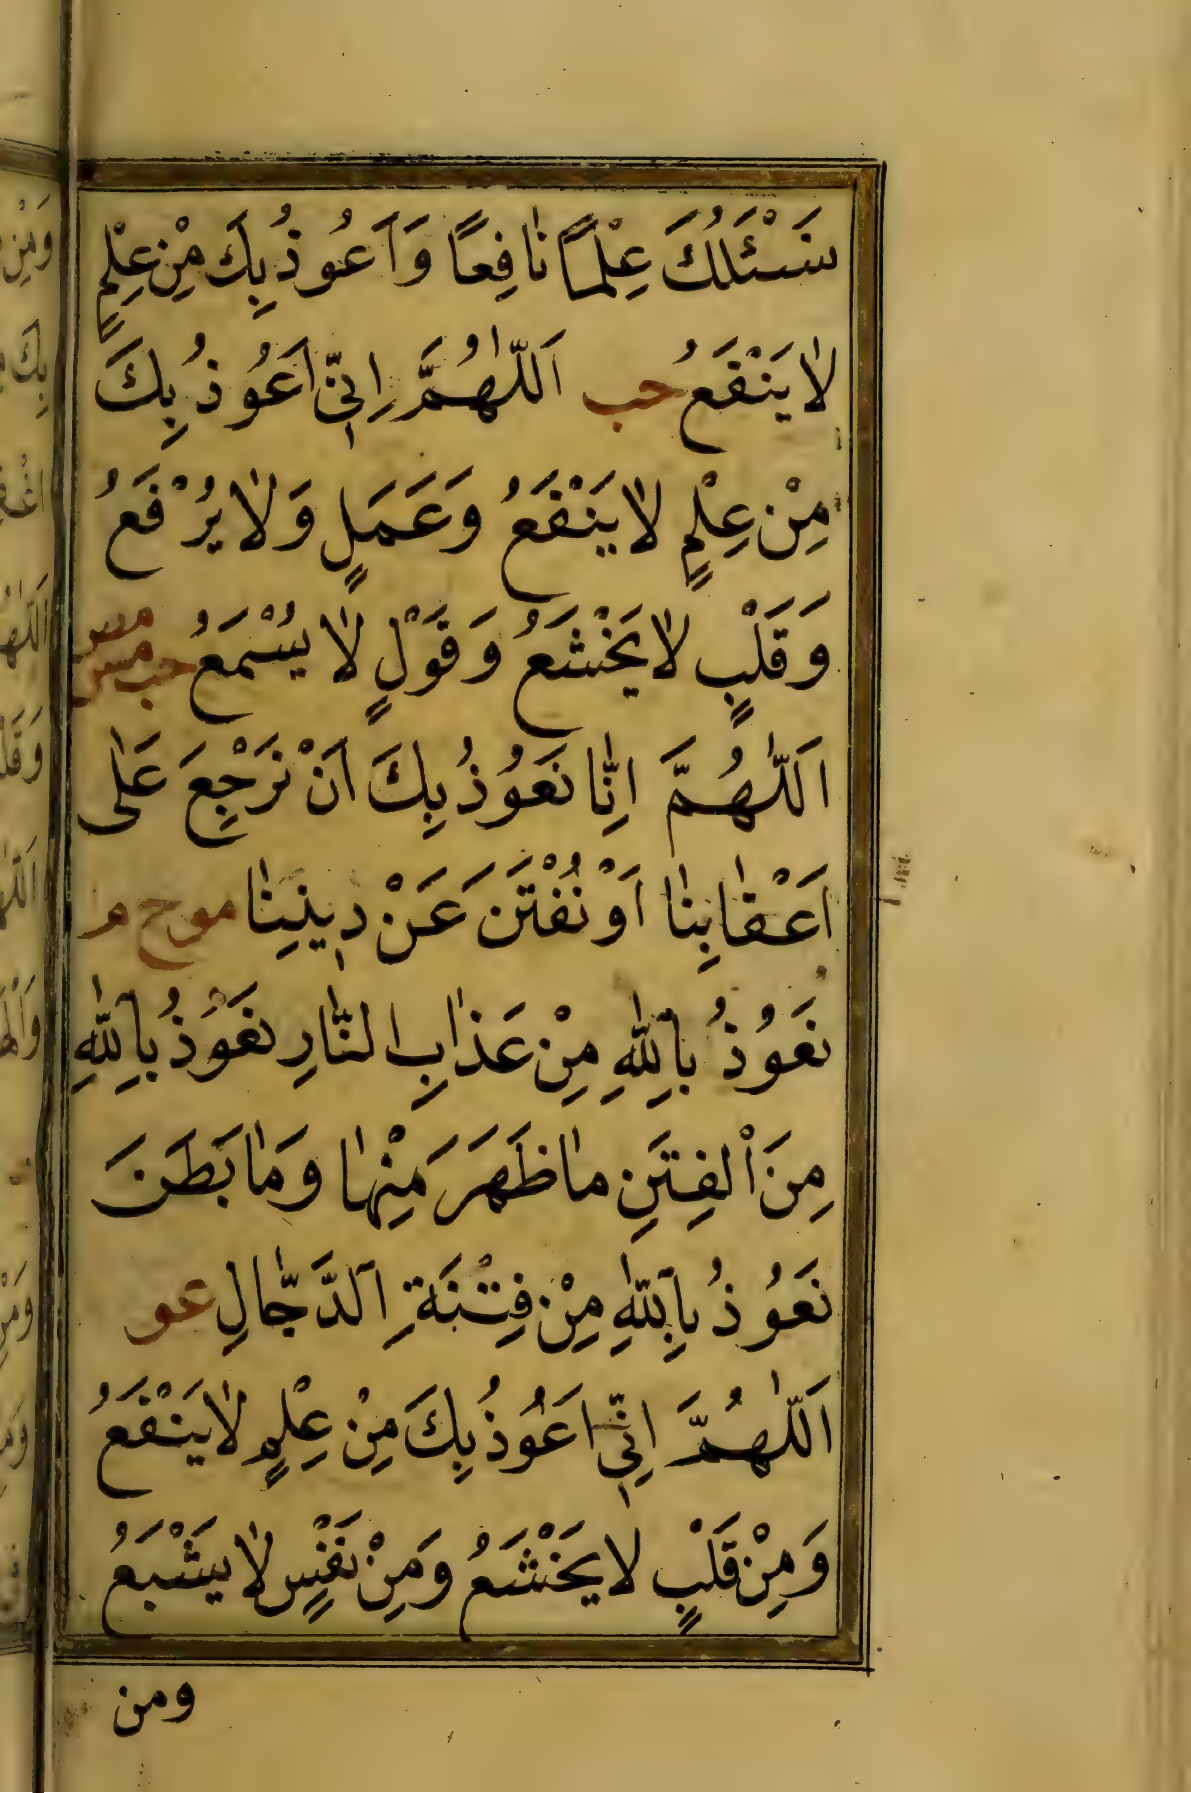 سَْٔـَٔلُكَ عِلْمًا نٰافِعًا وَاَعُوذُ بِكَ مِنْ عِلْمٍ
لٰا يَنْفَعُ حب اَللّٰهُمَّ اِنّٖى اَعُوذُ بِكَ
مِنْ عِلْمٍ لٰا يَنْفَعُ وَعَمَلٍ وَلٰا يُرْفَعُ
وَقَلْبٍ لٰا يَخْشَعُ وَقَوْلٍ لٰا يُسْمَعُ حب مس مس
اَللّٰهُمَّ اِنّٰا نَعُوذُ بِكَ اَنْ نَرْجِعَ عَلٰى
اَعْقٰابِنٰا اَوْ نُفْتَنَ عَنْ دٖينِنٰا مو خ م
نَعُوذُ بِاللّٰهِ مِنْ عَذٰابِ النّٰارِ نَعُوذُ بِاللّٰهِ
مِنَ الْفِتَنِ مٰا ظَهَرَ مِنْهٰا وَمٰا بَطَنَ
نَعُوذُ بِاللّٰهِ مِنْ فِتْنَةِ الدَّجّٰالِ عو
اَللّٰهُمَّ اِنّٖى اَعُوذُ بِكَ مِنْ عِلْمٍ لٰا يَنْفَعُ
وَمِنْ قَلْبٍ لٰا يَخْشَعُ وَمِنْ نَفْسٍ لٰا يَشْبَعُ
ومن